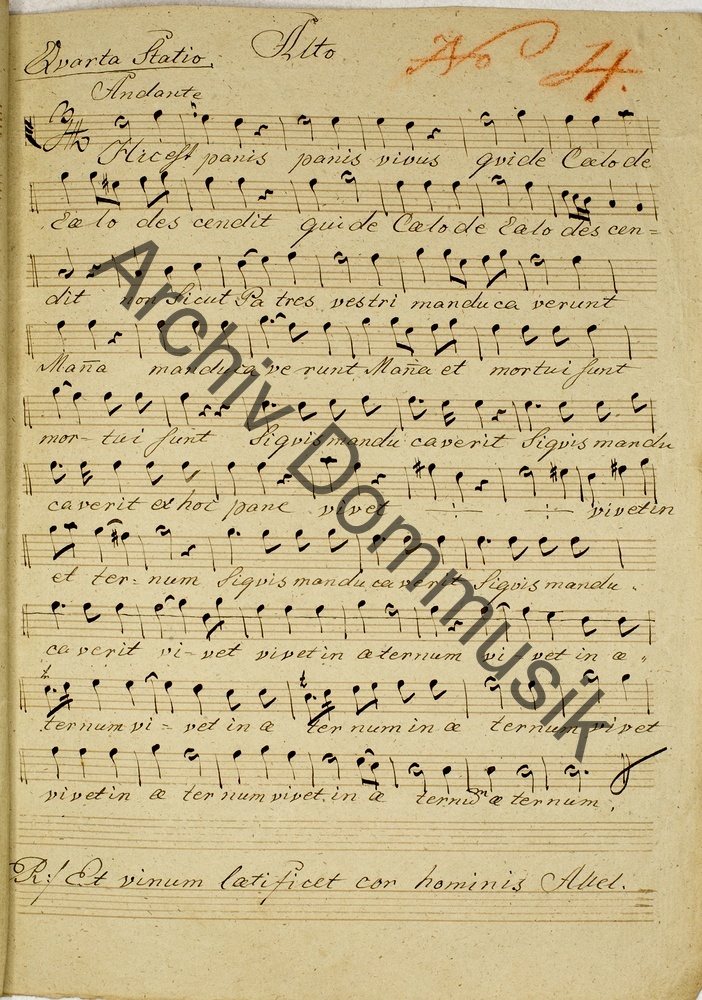 Qvarta Statio. Alto No 4.
Andante
Hic est panis panis vivus qvi de Cœlo de
Cœlo des cendit qui de Cœlo de Cœlo des cen=
dit non sicut Pa tres vestri manduca verunt
Maña manduca ve runt Maña et mortui sunt
mor- tui sunt Siqvis mandu caverit Siqvis mandu
caverit ex hoc pane vivet -:- -:- vivet in
et ter- num Siqvis mandu ca verit Siqvis mandu.
ca verit vi- vet vivet in æternum vi- vet in æ"
ternum vi- vet in æ ternum in æ ternum vivet
vivet in æ ternum vivet. in æ æ ternum.
R:/ Et vinum lætificet cor hominis Allel.
Archiv Dommusik